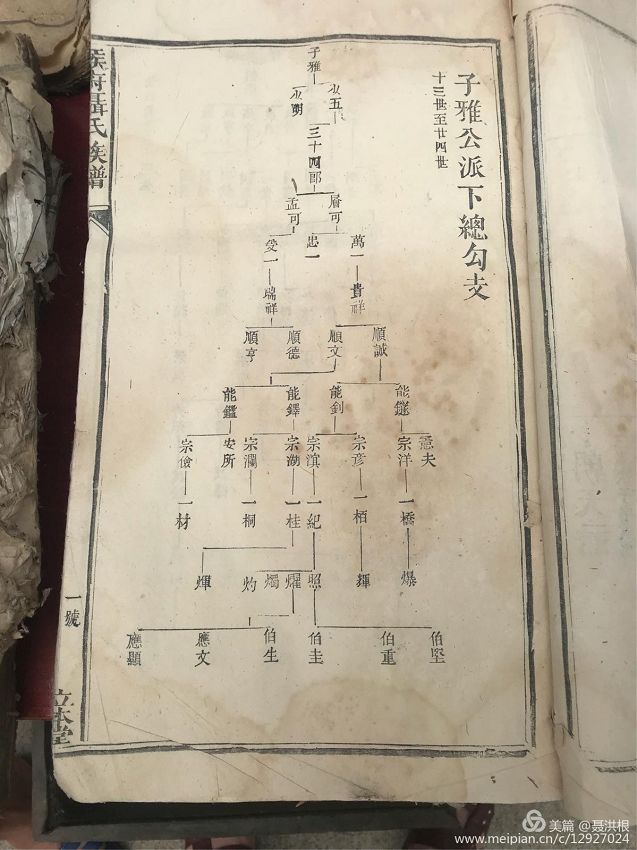 子雅公派下總勾支
十三世至廿四世
子雅
火五
火明
三十四郎
眉可
孟可
萬一
思一
愛一
貴祥
瑞祥
順誠
順文
順德
順亨
能鎚
能釗
能鐸
能鑑
憲夫
宗洋
宗彦
宗滇
宗湖
宗瀾
安所
宗儉
一橋
一栢
一紀
一桂
一桐
一材
爆
輝
照
燿
燭
灼
煇
伯堅
伯重
伯圭
伯生
應文
應顯
聶氏族譜
一號
立本堂
美篇 @聂洪根
www.meipian.cn/c/12927024